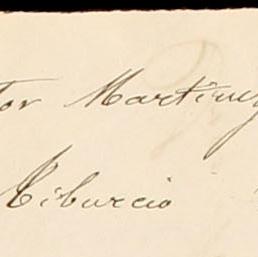 tor Martinez
Tiburcio